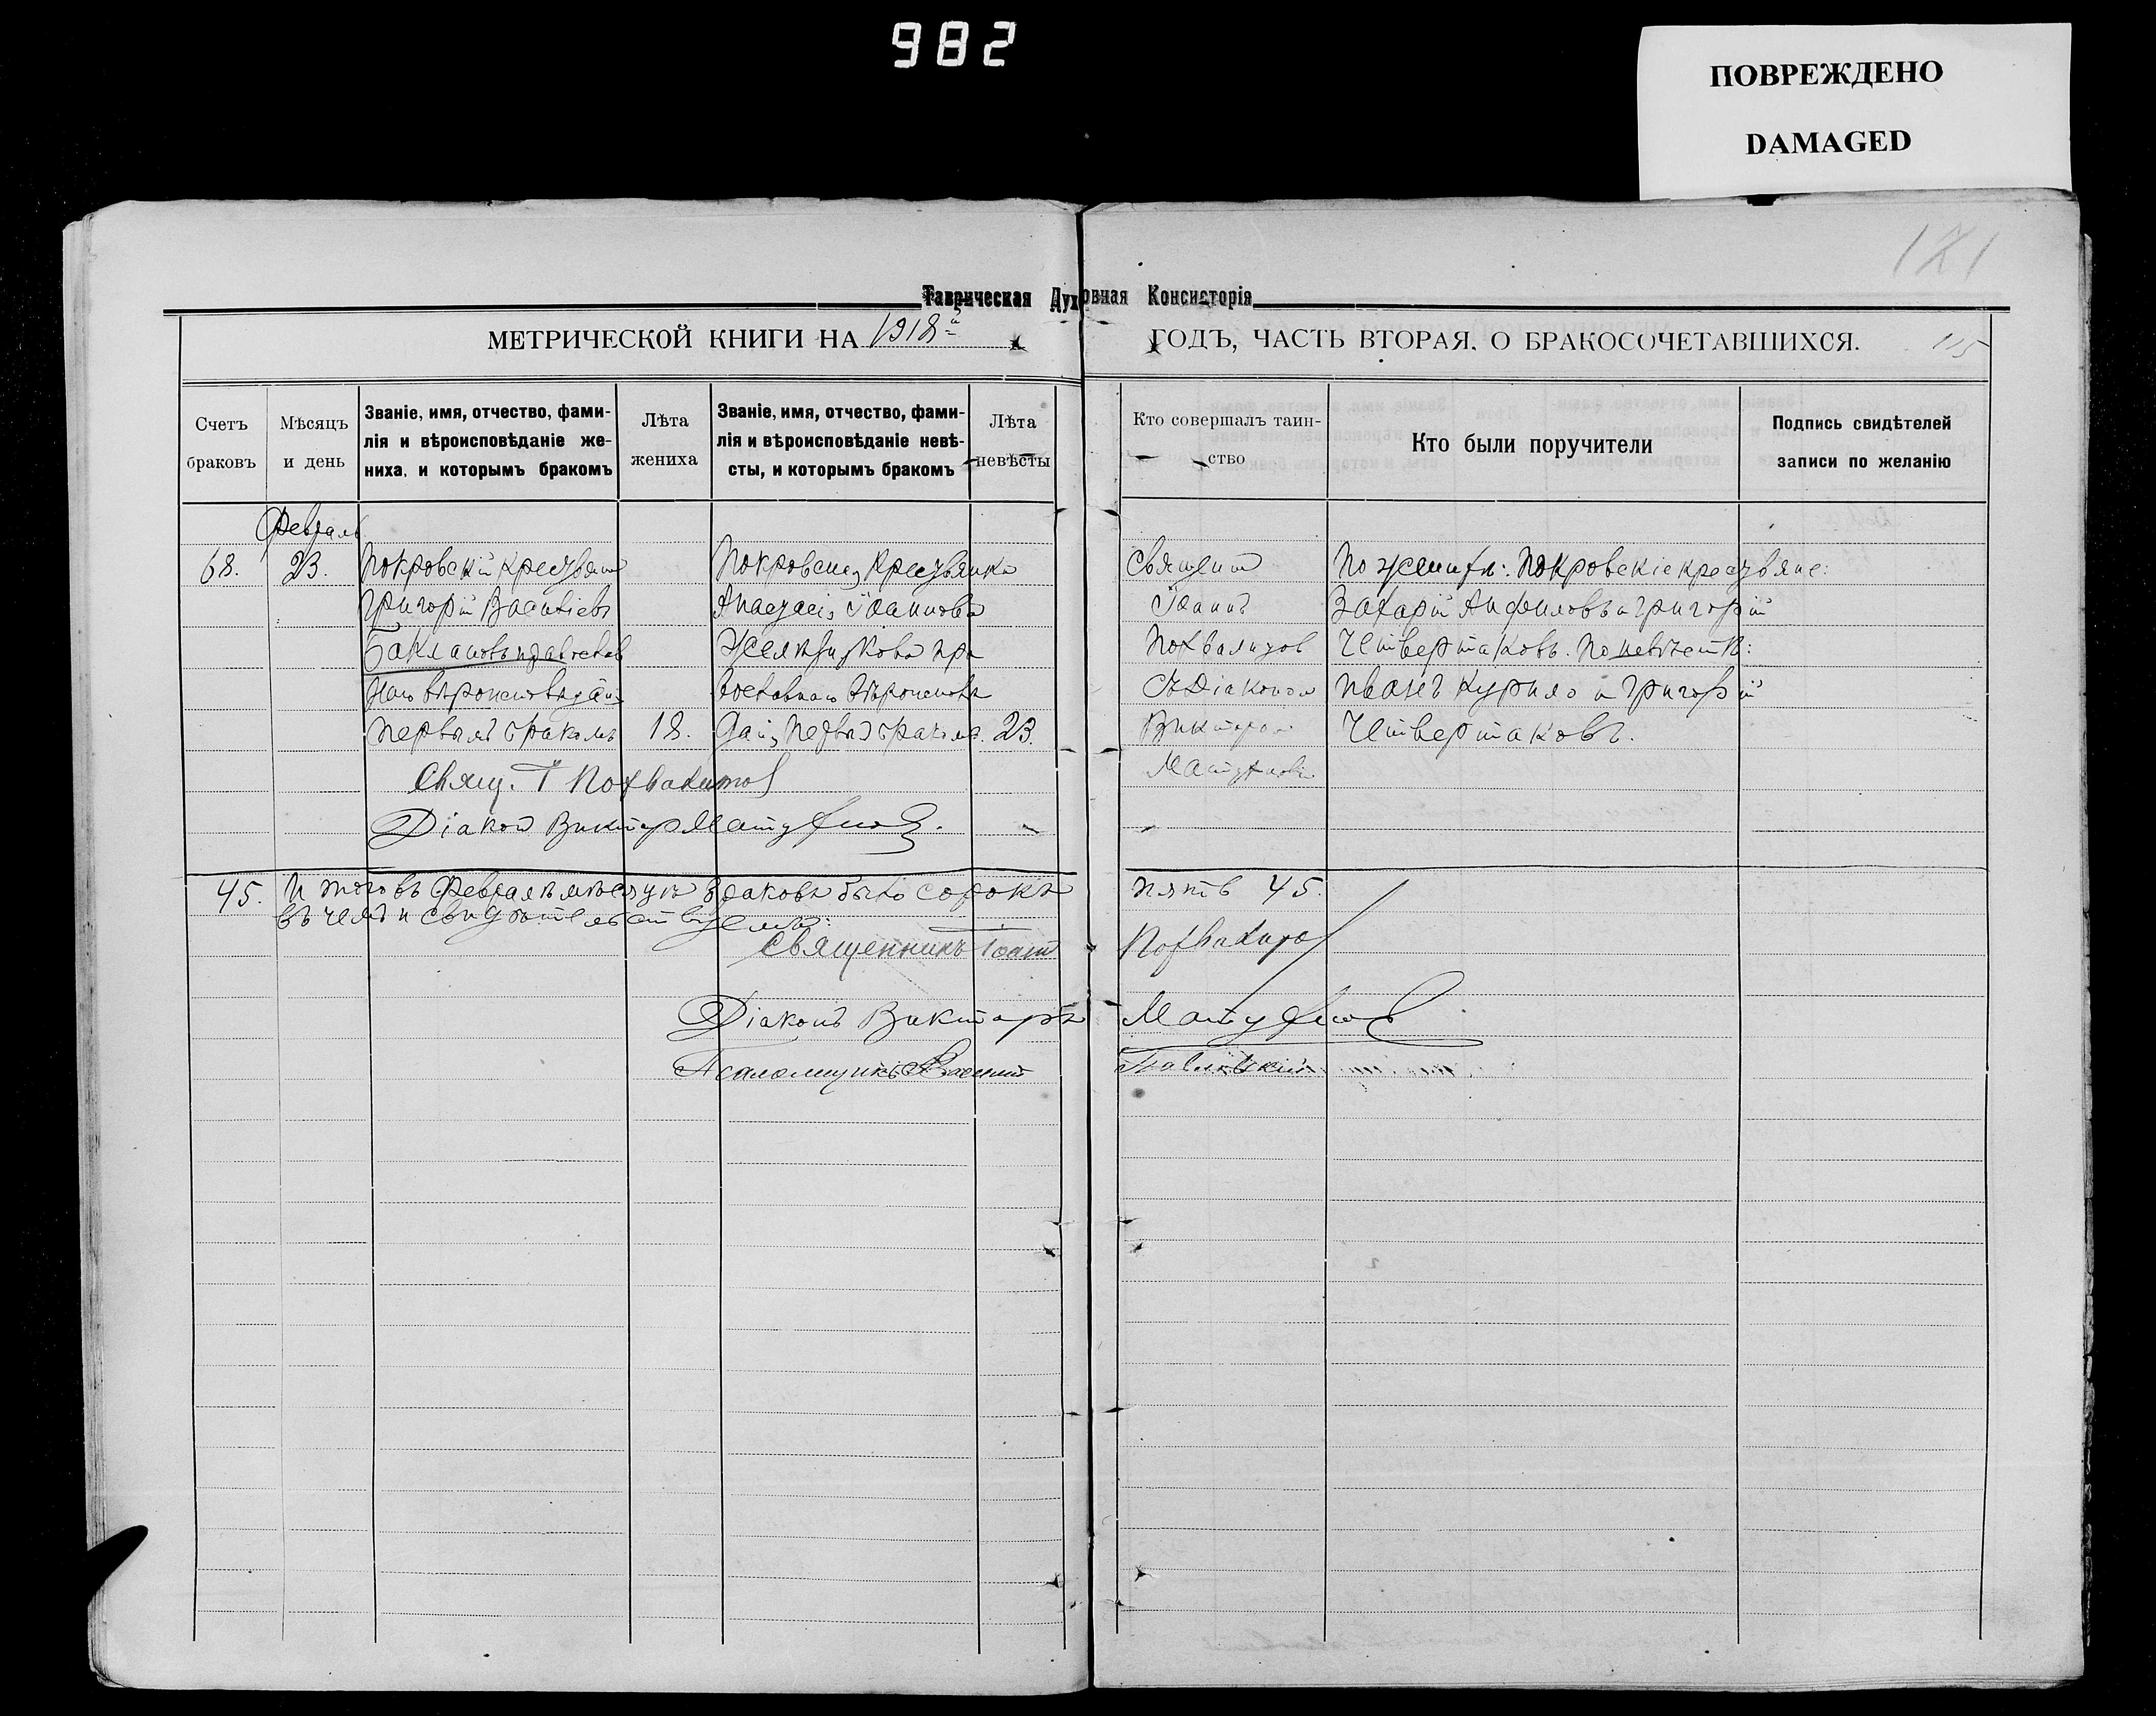 982
ПОВРЕЖДЕНО
DAMAGED
Таврическая Духовная Консисторія
МЕТРИЧЕСКОЙ КНИГИ НА 1918й ГОДЪ, ЧАСТЬ ВТОРАЯ, О БРАКОСОЧЕТАВШИХСЯ. 115
Счетъ браковъ
Мѣсяцъ и день
Званіе, имя, отчество, фами-
лія и вѣроисповѣданіе же-
ниха, и которымъ бракомъ
Лѣта жениха
Званіе, имя, отчество, фами-
лія и вѣроисповѣданіе невѣ-
сты, и которымъ бракомъ
Лѣта невѣсты
Кто совершалъ таин-
ство
Кто были поручители
Подпись свидѣтелей
записи по желанію
Февраль
68.
23.
Покровскій крестьянинъ
Григорій Васильевъ
Баклановъ православ
наго вѣроисповѣданія
первымъ бракомъ
18.
Покровская крестьянка
Анастасія Іоаннова
пра
вославнаго вѣроисповѣ
данія первымъ бракомъ.
23.
Священ
Іоаннъ
Похвалитов
съ Діакономъ
Викторомъ
По женихѣ: Покровскіе крестьяне:
Захарій Анфиловъ и Григорій
Четвертаковъ. По невѣстѣ:
Иванъ Курило и Григорій
Четвертаковъ.
Свящ. І Похвалитов
Діакон Виктор
45. Итого въ Февралѣ мѣсяцѣ браковъ было сорокъ пять 45.
въ чемъ и свидѣтельствуемъ:
Священникъ Іоанн Похвалитов
Діаконъ Викторъ
Псаломщикъ Василій Павловскій